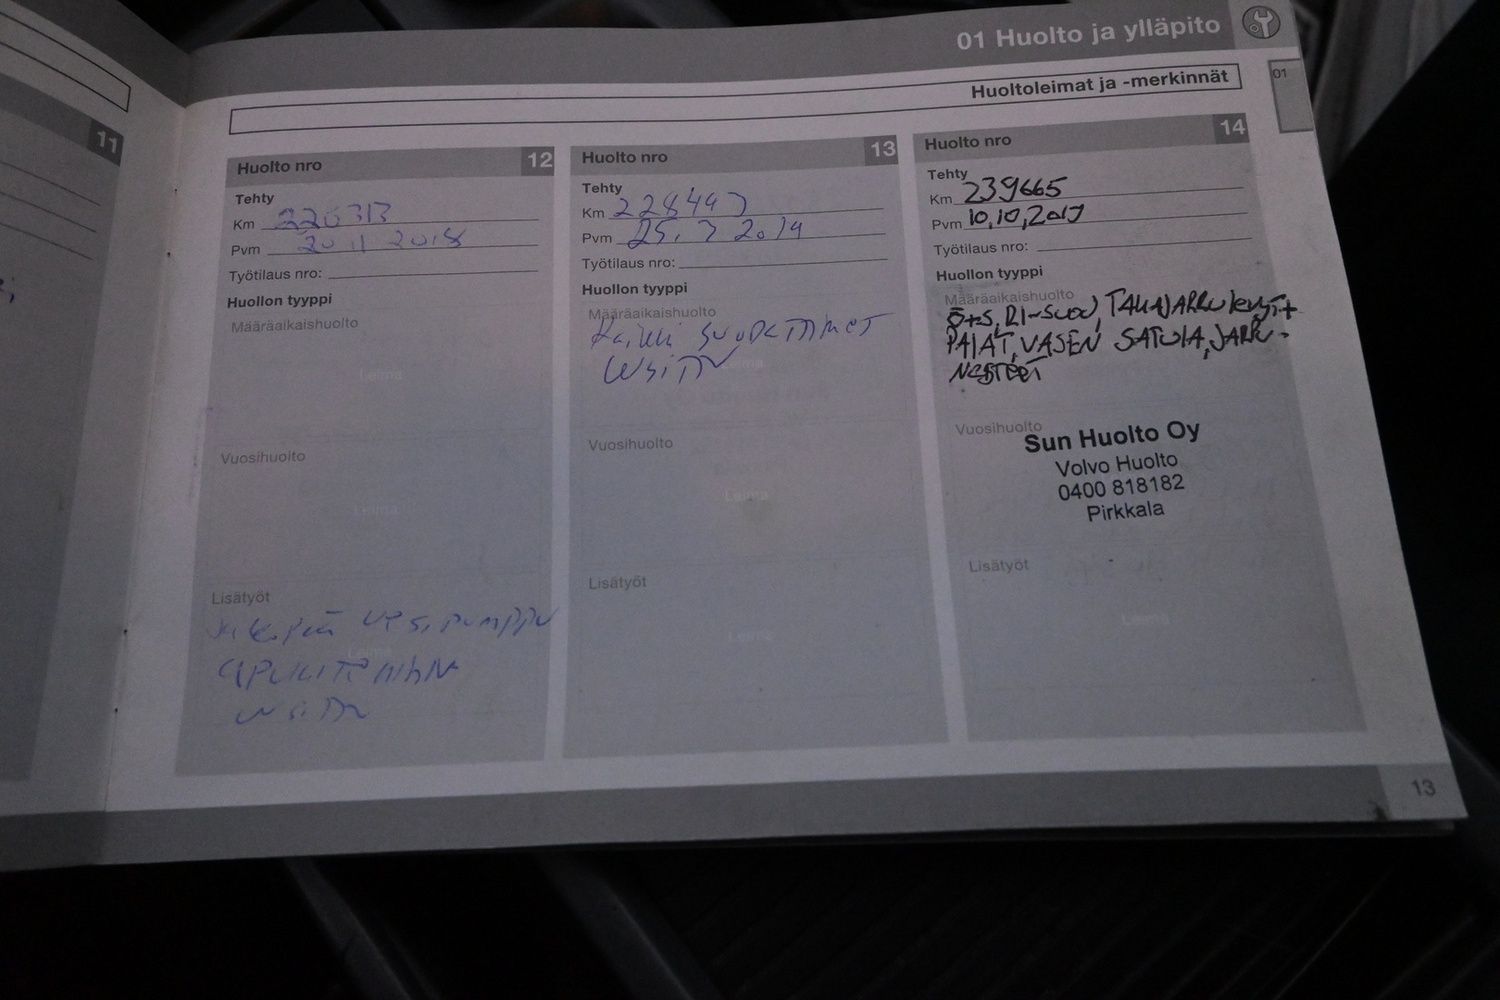 01 Huolto ja ylläpito
01
Huoltoleimat ja -merkinnät
11
Huolto nro 12
Tehty
Km 220313
Pvm 20 11 2018
Työtilaus nro:
Huollon tyyppi
Määräaikaishuolto
Leima
Vuosihuolto
Leima
Lisätyöt
Jakopää vesipumppu
apulaitehihna
uusittu
Leima
Huolto nro 13
Tehty
Km 228497
Pvm 25.7 2019
Työtilaus nro:
Huollon tyyppi
Määräaikaishuolto
Kaikki suodattimet
uusittu
Leima
Vuosihuolto
Leima
Lisätyöt
Leima
Huolto nro 14
Tehty
Km 239665
Pvm 10,10,2019
Työtilaus nro:
Huollon tyyppi
Määräaikaishuolto
Ö+S, RI-SUOD, TAKAJARRULEVYT+
PALAT, VASEN SATULA, JARRU-
NESTEET
Vuosihuolto
Sun Huolto Oy
Volvo Huolto
0400 818182
Pirkkala
Lisätyöt
Leima
13